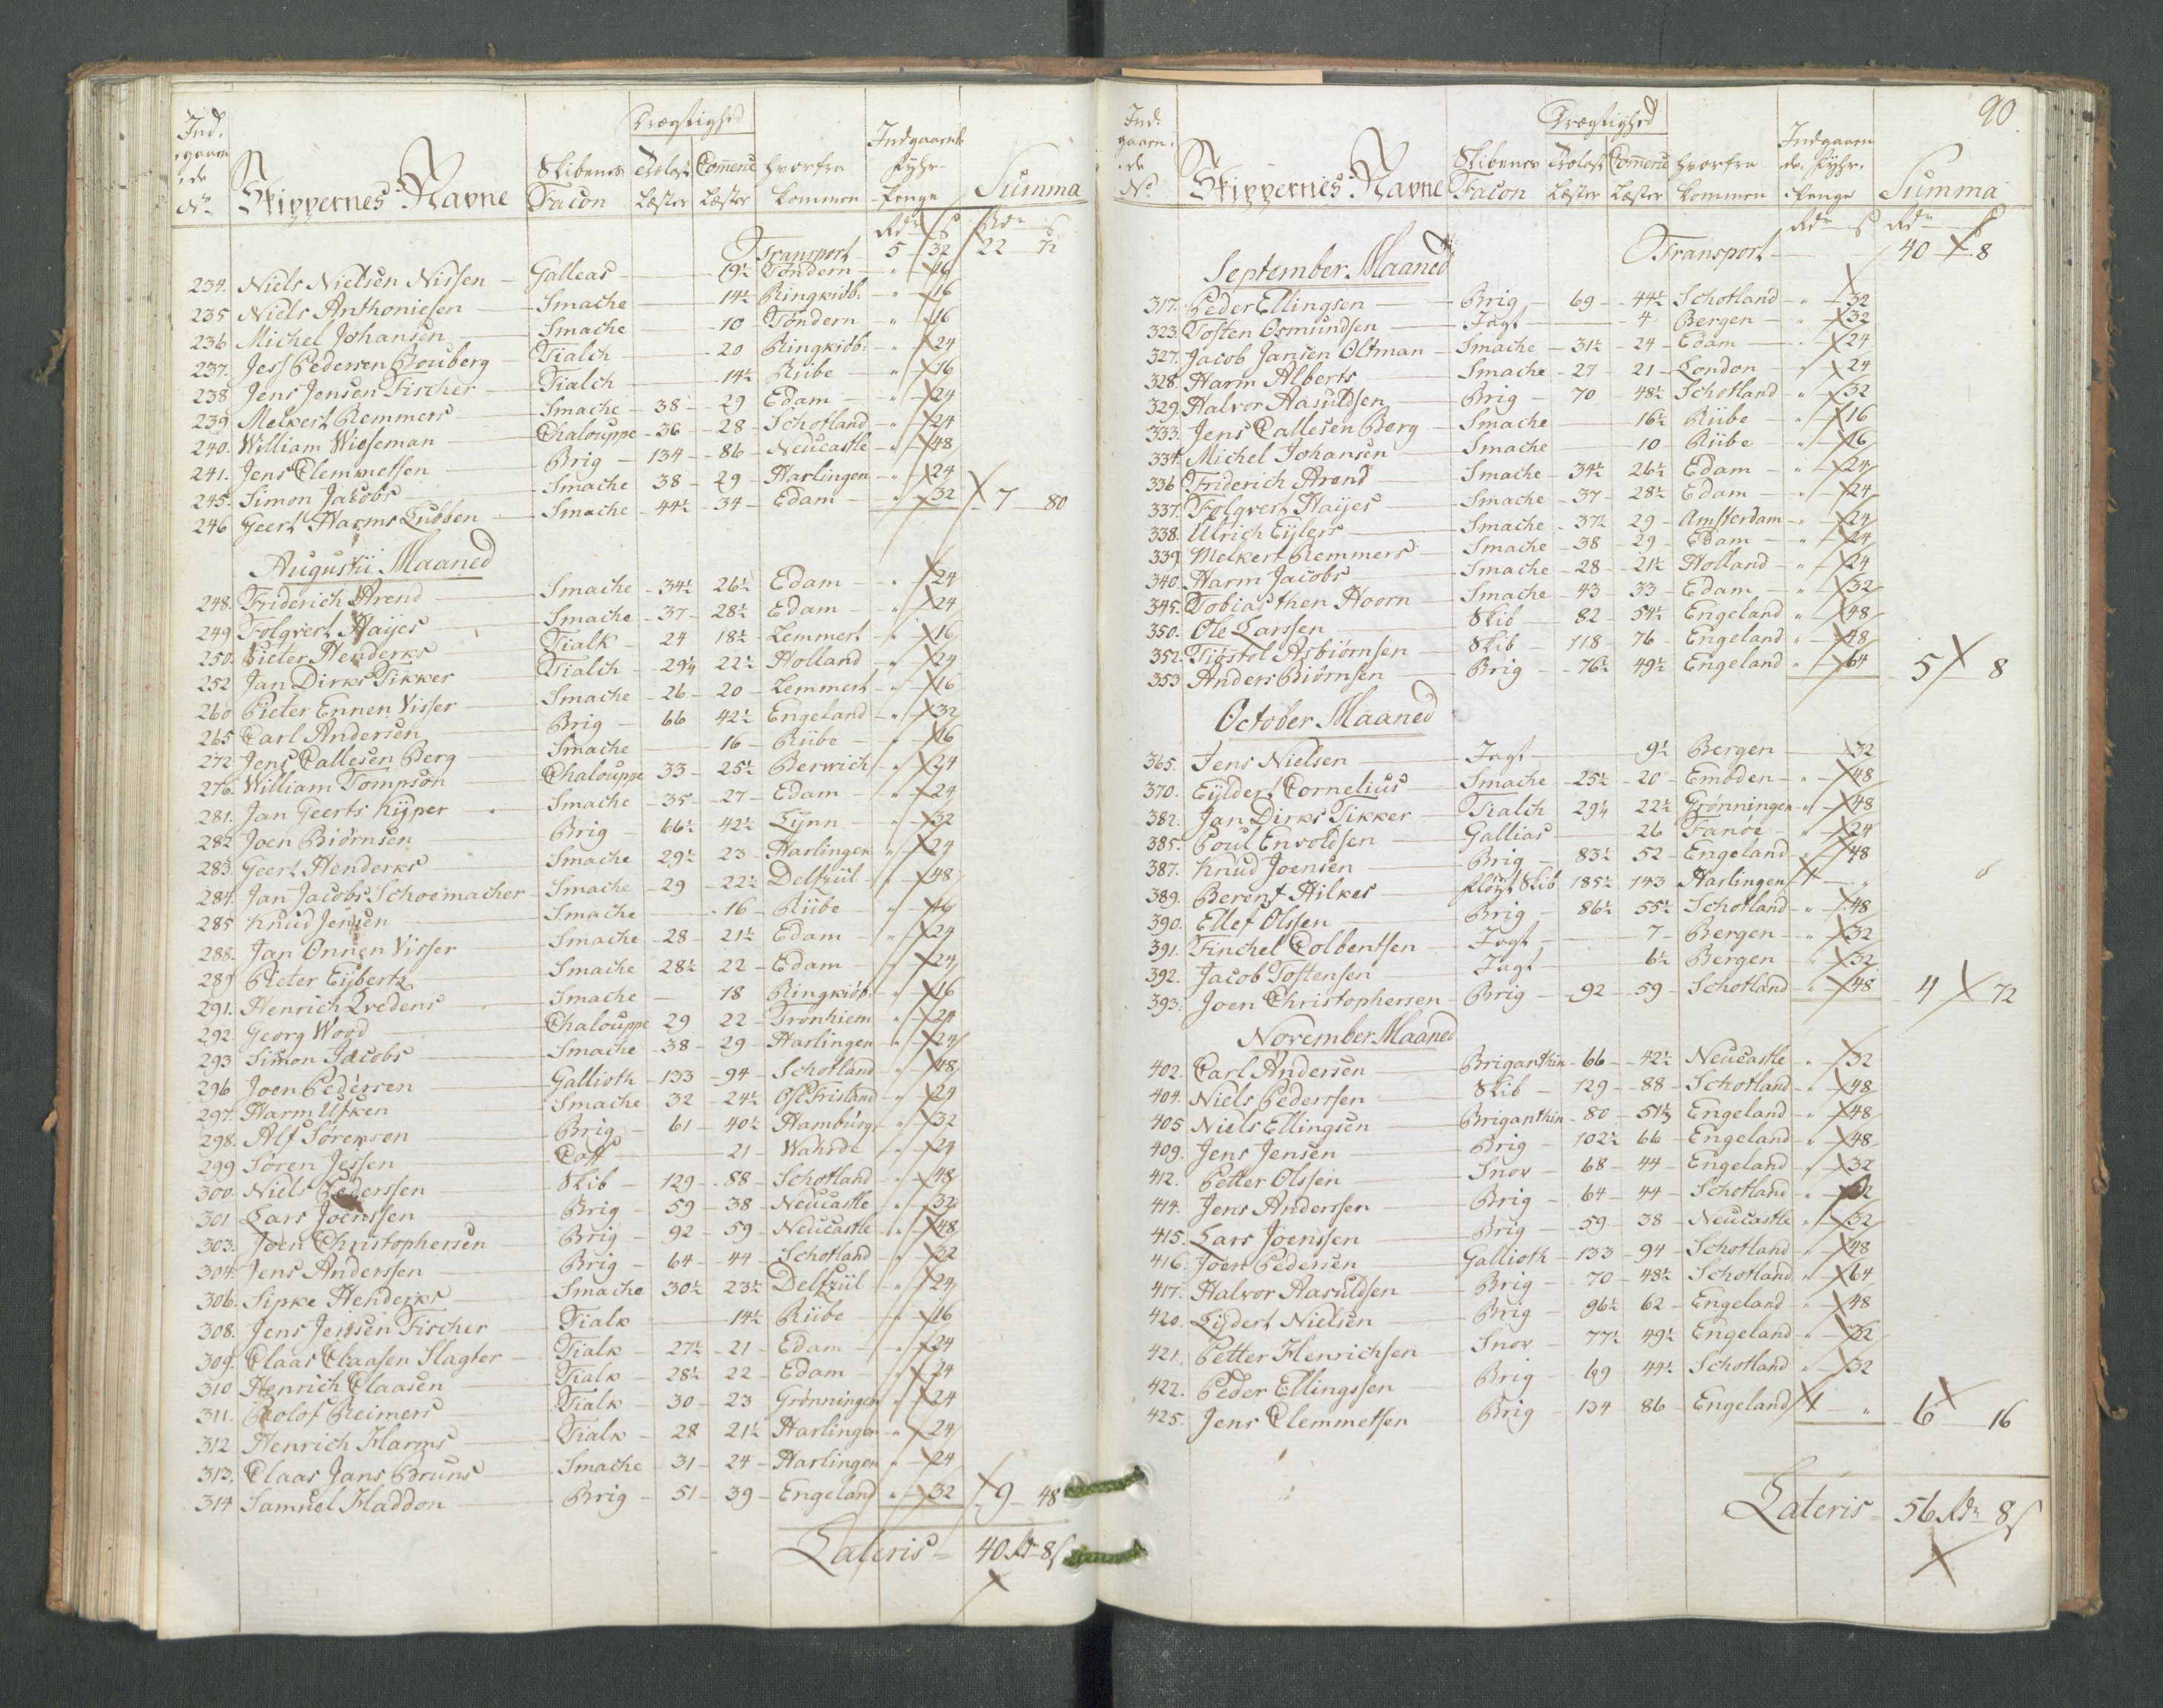 Ind.
gaaen
de
No Skippernes Navne Skibenes Facon Drægtighed Trolast Læster Comerce Læster Hvorfra kommen Indgaaende Fyhr Penge Summa
Rdr ß Rdr ß
Transport 5 32 22 72
234. Niels Nielsen Nissen Galleas 19½ Tøndern " 16
235 Niels Anthoniesen Smache 14½ Ringkiøb: " 16
236 Michel Johansen Smache 10 Tøndern " 16
237. Jess Pedersen Bouberg Tialch 20 Ringkiøb: " 24
238 Jens Jensen Fischer Tialch 14½ Riibe " 16
239 Melkert Remmers Smache 38 29 Edam " 24
240. William Wieseman Chalouppe 36 28 Schotland " 24
241. Jens Clemmetsen Brig 134 86 Neucastle " 48
245. Simon Jakobs Smache 38 29 Harlingen " 24
246 Geert Harms Lubben Smache 44½ 34 Edam " 32 7 80
Augustii Maaned
248. Friderich Arend Smache 34½ 26½ Edam " 24
249 Folqvert Haijes Smache 37 28½ Edam " 24
250. Pieter Henderks Tialk 24 18½ Lemmert " 16
252 Jan Dirks Tikker Tialch 29¼ 22½ Holland " 24
260 Pieter Ennen Visser Smache 26 20 Lemmert " 16
265 Carl Andersen Brig 66 42½ Engeland " 32
272 Jens Callesen Berg Smache 16 Riibe " 16
276. William Tompson Chalouppe 33 25½ Berwich " 24
281. Jan Geerts Kijper Smache 35 27 Edam " 24
282 Joen Biørnsen Brig 66½ 42½ Lynn " 32
283. Geert Henderks Smache 29½ 23 Harlingen " 24
284. Jan Jacobs Schoemacher Smache 29 22½ Delfziil " 48
285 Knud Jensen Smache 16 Riibe " 16
288. Jan Onnen Visser Smache 28 21½ Edam " 24
289 Pieter Eijbertz Smache 28½ 22 Edam " 24
291. Henrich Qvedens Smache 18 Ringkiøb: " 16
292. Georg Wood Chalouppe 29 22 Tronhiem " 24
293 Simon Jacobs Smache 38 29 Harlingen " 24
296 Joen Pedersen Gallioth 133 94 Schotland " 48
297. Harm Ufken Smache 32 24½ OstFrisland " 24
298. Alf Sørensen Brig 61 40½ Hamburg " 32
299 Søren Jessen Caff 21 Wahrde " 24
300. Niels Pederssen Skib 129 88 Schotland " 48
301 Lars Joenssen Brig 59 38 Neucastle " 32
303. Joen Christophersen Brig 92 59 Neucastle " 48
304. Jens Anderssen Brig 64 44 Schotland " 32
306. Sipke Henderks Smache 30½ 23½ Delfziil " 24
308. Jens Jensen Fischer Tialk 14½ Riibe " 16
309. Claas Claasen Slagter Tialk 27½ 21 Edam " 24
310 Henrich Claasen Tialk 28½ 22 Edam " 24
311. Rolof Reimers Tialk 30 23 Grønningen " 24
312 Henrich Harms Tialk 28 21½ Harlingen " 24
313. Claas Jans Bruns Smache 31 24 Harlingen " 24
314 Samuel Haddon Brig 51 39 Engeland " 32 9 48
Lateris 40 Rdr 8 ß
90.
Ind.
gaaen.
de
No Skippernes Navne Skibenes Facon Drægtighed Trolast Læster Comerce Læster Hvorfra kommen Indgaaen de Fyhr. Penge Summa
Rdr ß Rdr ß
Transport 40 8
September Maaned
317. Peder Ellingsen Brig 69 44½ Schotland " 32
323. Tosten Osmundsen Jagt 4 Bergen " 32
327. Jacob Jansen Oltman Smache 31½ 24 Edam " 24
328. Harm Alberts Smache 27 21 London " 24
329. Halvor Aasuldsen Brig 70 48½ Schotland " 32
333. Jens Callesen Berg Smache 16½ Riibe " 16
334. Michel Johansen Smache 10 Riibe " 16
336 Friderich Arend Smache 34½ 26½ Edam " 24
337. Folqvert Haijes Smache 37 28½ Edam " 24
338. Ulrich Eijlers Smache 37½ 29 Amsterdam " 24
339. Melkert Remmers Smache 38 29 Edam " 24
340. Harm Jacobs Smache 28 21½ Holland " 24
345. Tobias then Hoorn Smache 43 33 Edam " 32
350. Ole Larssen Skib 82 54½ Engeland " 48
352. Tiøstol Asbiørnsen Skib 118 76 Engeland " 48
353 Anders Biørnsen Brig 76½ 49½ Engeland " 64 5 8
October Maaned
365. Jens Nielsen Jagt 9½ Bergen 32
370. Eijldert Cornelius Smache 25½ 20 Embden " 48
382. Jan Dirks Tikker Tialch 29¼ 22½ Grønningen " 48
385. Poul Envoldsen Gallias 26 Fanøe " 24
387. Knud Joensen Brig 83½ 52 Engeland " 48
389. Berent Hilkes Fløyt Skib 185½ 143 Harlingen 1 "
390. Ellef Olssen Brig 86½ 55½ Schotland " 48
391. Finchel Colbentsen Jagt 7 Bergen " 32
392. Jacob Tostensen Jagt 6½ Bergen " 32
393. Joen Christophersen Brig 92 59 Schotland " 48 4 72
November Maaned
402. Carl Andersen Briganthin 66 42½ Neucastle " 32
404. Niels Pederssen Skib 129 88 Schotland " 48
405 Niels Ellingsen Briganthin 80 51½ Engeland " 48
409. Jens Jensen Brig 102½ 66 Engeland " 48
412. Petter Olssen Snov 68 44 Engeland " 32
414. Jens Anderssen Brig 64 44 Schotland " 32
415. Lars Joenssen Brig 59 38 Neucastle " 32
416. Joen Pedersen Gallioth 133 94 Schotland " 48
417. Halvor Aasuldsen Brig 70 48½ Schotland " 64
420. Lydert Nielsen Brig 96½ 62 Engeland " 48
421. Petter Henrichsen Snov 77½ 49½ Engeland " 32
422. Peder Ellingssen Brig 69 44½ Schotland " 32
425. Jens Clemmetsen Brig 134 86 Engeland 1 " 6 16
Lateris 56 Rdr 8 ß